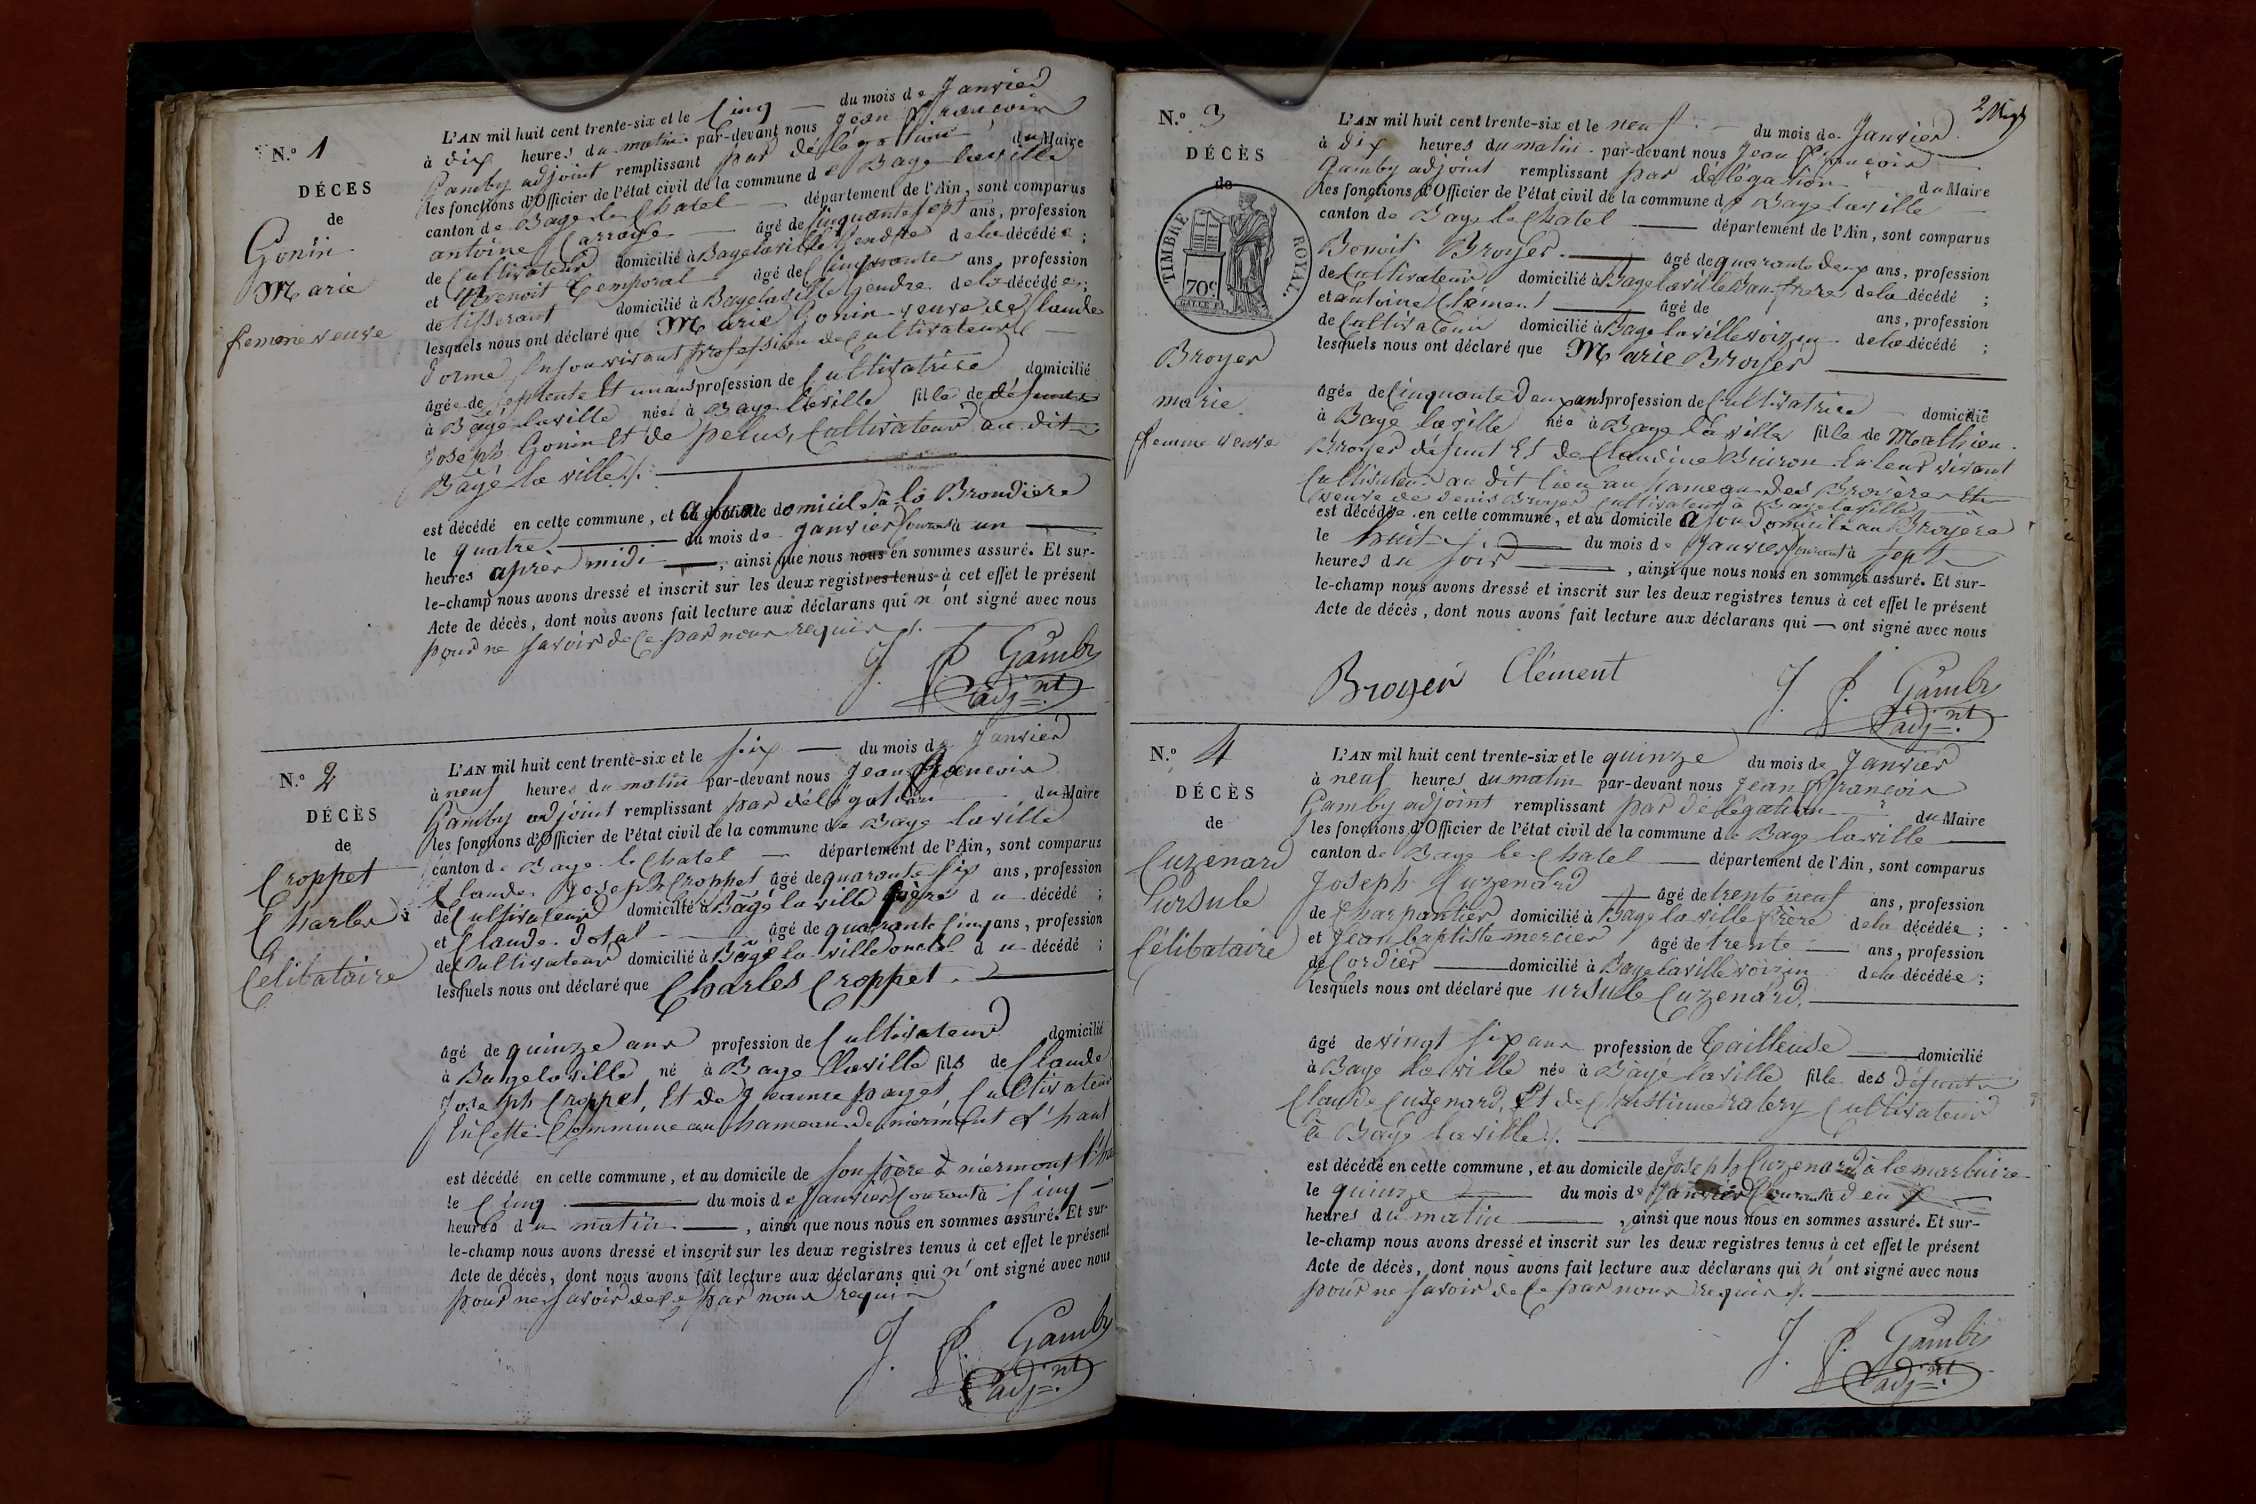 N.º 1
DÉCES
de
Gonin
Marie
femme veuve
L'AN mil huit cent trente-six et le Cinq du mois de Janvier
à dix heures du matin par-devant nous Jean François
Gamby adjoint remplissant par délégation du Maire
les fonctions d'Officier de l'état civil de la commune de Bage la ville
canton de Bage le Chatel département de l'Ain, sont comparus
antoine Carrage âgé de Cinquante sept ans, profession
de Cultivateur domicilié à Bage la ville gendre de la décédée ;
et Benoit Temporal âgé de Cinquante ans, profession
de tisserant domicilié à Bage la ville gendre de la décédée ;
lesquels nous ont déclaré que Marie Gonin veuve de Claude
Dorme, En son vivant profession de Cultivateur
âgée de septente Et un ans profession de Cultivatrice domicilié
à Bâgé la ville née à Bage la ville fille de défunts
Joseph Gonin Et de pelus, Cultivateur au dit
Bâgé la ville
est décédé en cette commune, et au domicile a son domicile à la Brondière
le quatre du mois de janvier Courant à un
heures après midi, ainsi que nous nous en sommes assuré. Et sur-
le-champ nous avons dressé et inscrit sur les deux registres tenus à cet effet le présent
Acte de décès, dont nous avons fait lecture aux déclarans qui n'ont signé avec nous
pour ne savoir de Ce par nous requis
J. f. Gamby
adj.nt
N.º 2
DÉCÈS
de
Croppet
Charles
Célibataire
L'AN mil huit cent trente-six et le six du mois de Janvier
à neuf heures du matin par-devant nous Jean François
Gamby adjoint remplissant par délégation du Maire
les fonctions d'Officier de l'état civil de la commune de Bage la ville
canton de Bage le Chatel département de l'Ain, sont comparus
Claude Joseph Croppet âgé de quarante six ans, profession
de Cultivateur domicilié à Bâgé la ville père du décédé ;
et Claude Dotal âgé de quarante Cinq ans, profession
de Cultivateur domicilié à Bâgé la ville oncle du décédé ;
lesquels nous ont déclaré que Charles Croppet
âgé de quinze ans profession de Cultivateur domicilié
à Bage la ville né à Bage la ville fils de Claude
Joseph Croppet, Et de Jeanne payet, Cultivateur
En Cette Commune au hameau de niermont d'haut
est décédé en cette commune, et au domicile de son père à niermont
le Cinq du mois de Janvier Courant à Cinq
heures du matin, ainsi que nous nous en sommes assuré. Et sur-
le-champ nous avons dressé et inscrit sur les deux registres tenus à cet effet le présent
Acte de décès, dont nous avons fait lecture aux déclarans qui n'ont signé avec nous
pour ne savoir de Ce par nous requis
J. f. Gamby
adj.nt
N.º 3
DÉCÈS
de
TIMBRE ROYAL.
70c
Broyer
marie
femme veuve
L'AN mil huit cent trente-six et le neuf du mois de Janvier
à Dix heures du matin par-devant nous Jean François
Gamby adjoint remplissant par délégation du Maire
les fonctions d'Officier de l'état civil de la commune de Bage la ville
canton de Bage le Chatel département de l'Ain, sont comparus
Benoit Broyer âgé de quarante deux ans, profession
de Cultivateur domicilié à Bage la ville Beau frere de la décédé ;
et antoine Clément âgé de ans, profession
de Cultivateur domicilié à Bage la ville voizin de la décédé ;
lesquels nous ont déclaré que Marie Broyer
âgée de Cinquante Deux ans profession de Cultivatrice domicilié
à Bage la ville née à Bage la ville fille de Mathieu
Broyer défunt Et de Claudine Buiron En leur vivant
Cultivateur au dit lieu au hameau des Broyères Et
veuve de denis Broyer Cultivateur à Bage la ville
est décédée en cette commune, et au domicile a son Domicile au Broyère
le huit du mois de Janvier Courant à sept
heures du soir, ainsi que nous nous en sommes assuré. Et sur-
le-champ nous avons dressé et inscrit sur les deux registres tenus à cet effet le présent
Acte de décès, dont nous avons fait lecture aux déclarans qui ont signé avec nous
Broyer Clément
J. f. Gamby
adj.nt
N.º 4
DÉCÈS
de
Cuzenard
Ursule
Célibataire
L'AN mil huit cent trente-six et le quinze du mois de Janvier
à neuf heures du matin par-devant nous Jean François
Gamby adjoint remplissant par délégation du Maire
les fonctions d'Officier de l'état civil de la commune de Bage la ville
canton de Bage le Chatel département de l'Ain, sont comparus
Joseph Cuzenard âgé de trente neuf ans, profession
de Charpantier domicilié à Bage la ville frère de la décédée ;
et Jean baptiste mercier âgé de trente ans, profession
de Cordier domicilié à Bage la ville voizin de la décédée ;
lesquels nous ont déclaré que ursule Cuzenard
âgé de vingt six ans profession de Tailleuse domicilié
à Bage la ville née à Bâgé la ville fille des Défunts
Claude Cuzenard, Et de Christinne ratery Cultivateur
à Bage la ville
est décédé en cette commune, et au domicile de Joseph Cuzenard à la marbuire
le quinze du mois de Janvier Courant à deux
heures du matin, ainsi que nous nous en sommes assuré. Et sur-
le-champ nous avons dressé et inscrit sur les deux registres tenus à cet effet le présent
Acte de décès, dont nous avons fait lecture aux déclarans qui n'ont signé avec nous
pour ne savoir de Ce par nous requis
J. f. Gamby
adj.nt